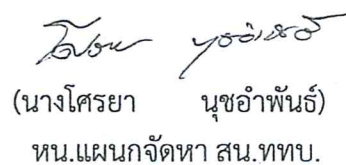 (นางโศรยา นุชอำพันธ์)
หน.แผนกจัดหา สน.ททบ.